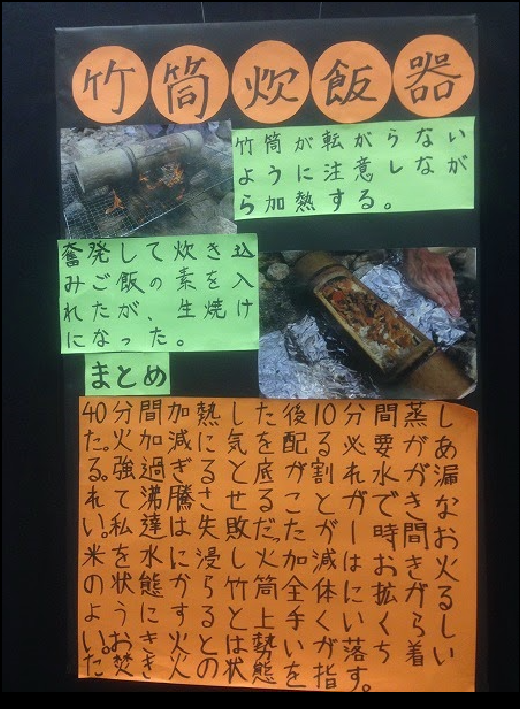 竹筒炊飯器
竹筒が転がらない
ように注意しなが
ら加熱する。
奮発して炊き込
みご飯の素を入
れたが、生焼け
になった。
まとめ
40分間加熱した後10分間蒸し
た。火加減に気を配る必要があ
る。強過ぎると底が割れ水が漏
れて沸騰させることができな
い。私達は失敗だったが一時間お
米を水に浸し火加減はおき火
の状態から竹筒全体に拡がる
ようにすると上手くいくらし
い。おき火とは勢いが落ち着い
た焚き火の状態を指す。